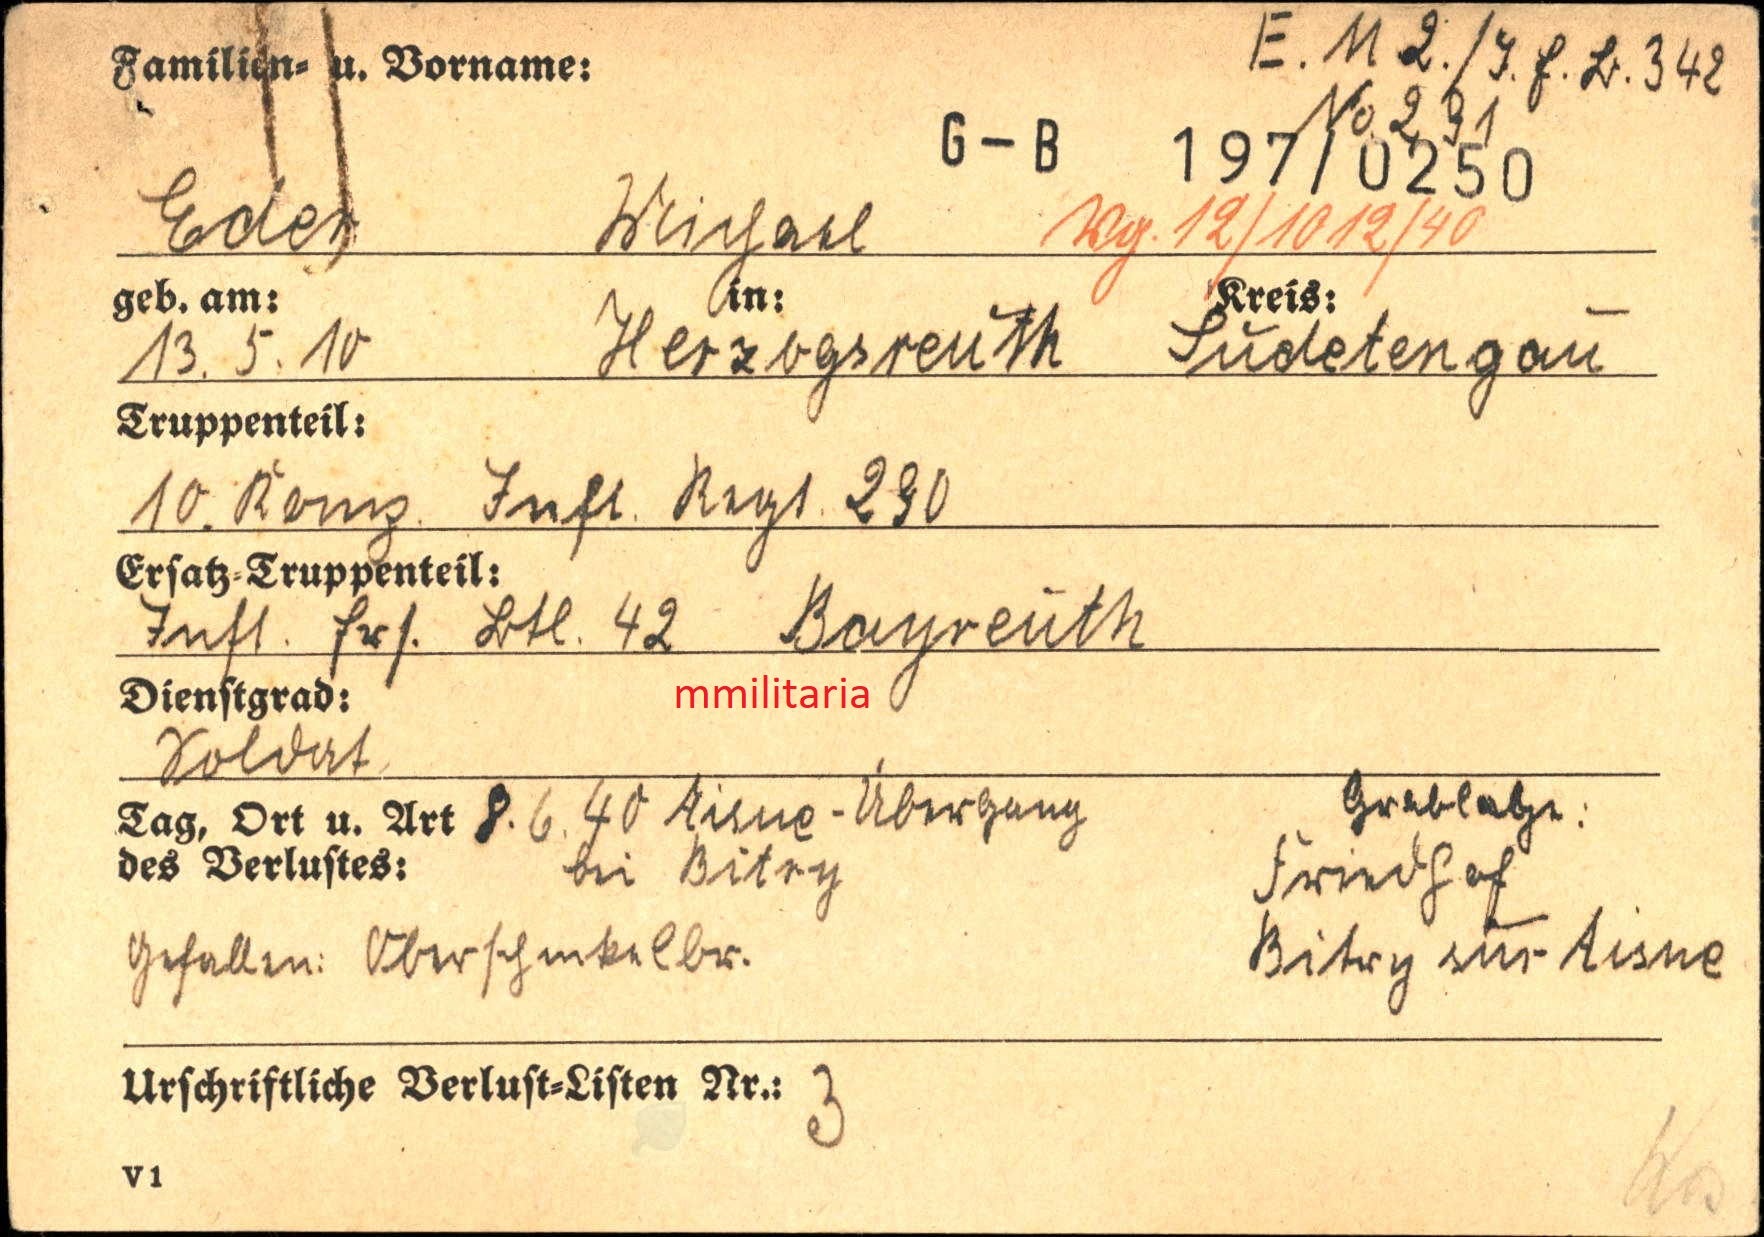 E. M 2./I. E. B. 342
Familien- u. Vorname:
No 291
G-B 197/0250
Eder Michael Wg. 12/10 12/40
geb. am: in: Kreis:
13. 5. 10 Herzogsreuth Sudetengau
Truppenteil:
10. Komp. Inft. Regt. 290
Ersatz-Truppenteil:
Inft. Ers. Btl. 42 Bayreuth
mmilitaria
Dienstgrad:
Soldat
Tag, Ort u. Art 8. 6. 40 Aisne-Übergang Grablage:
des Verlustes: bei Bitry Friedhof
Gefallen: Oberschenkelbr. Bitry sur Aisne
Urschriftliche Verlust-Listen Nr.: 3
V1